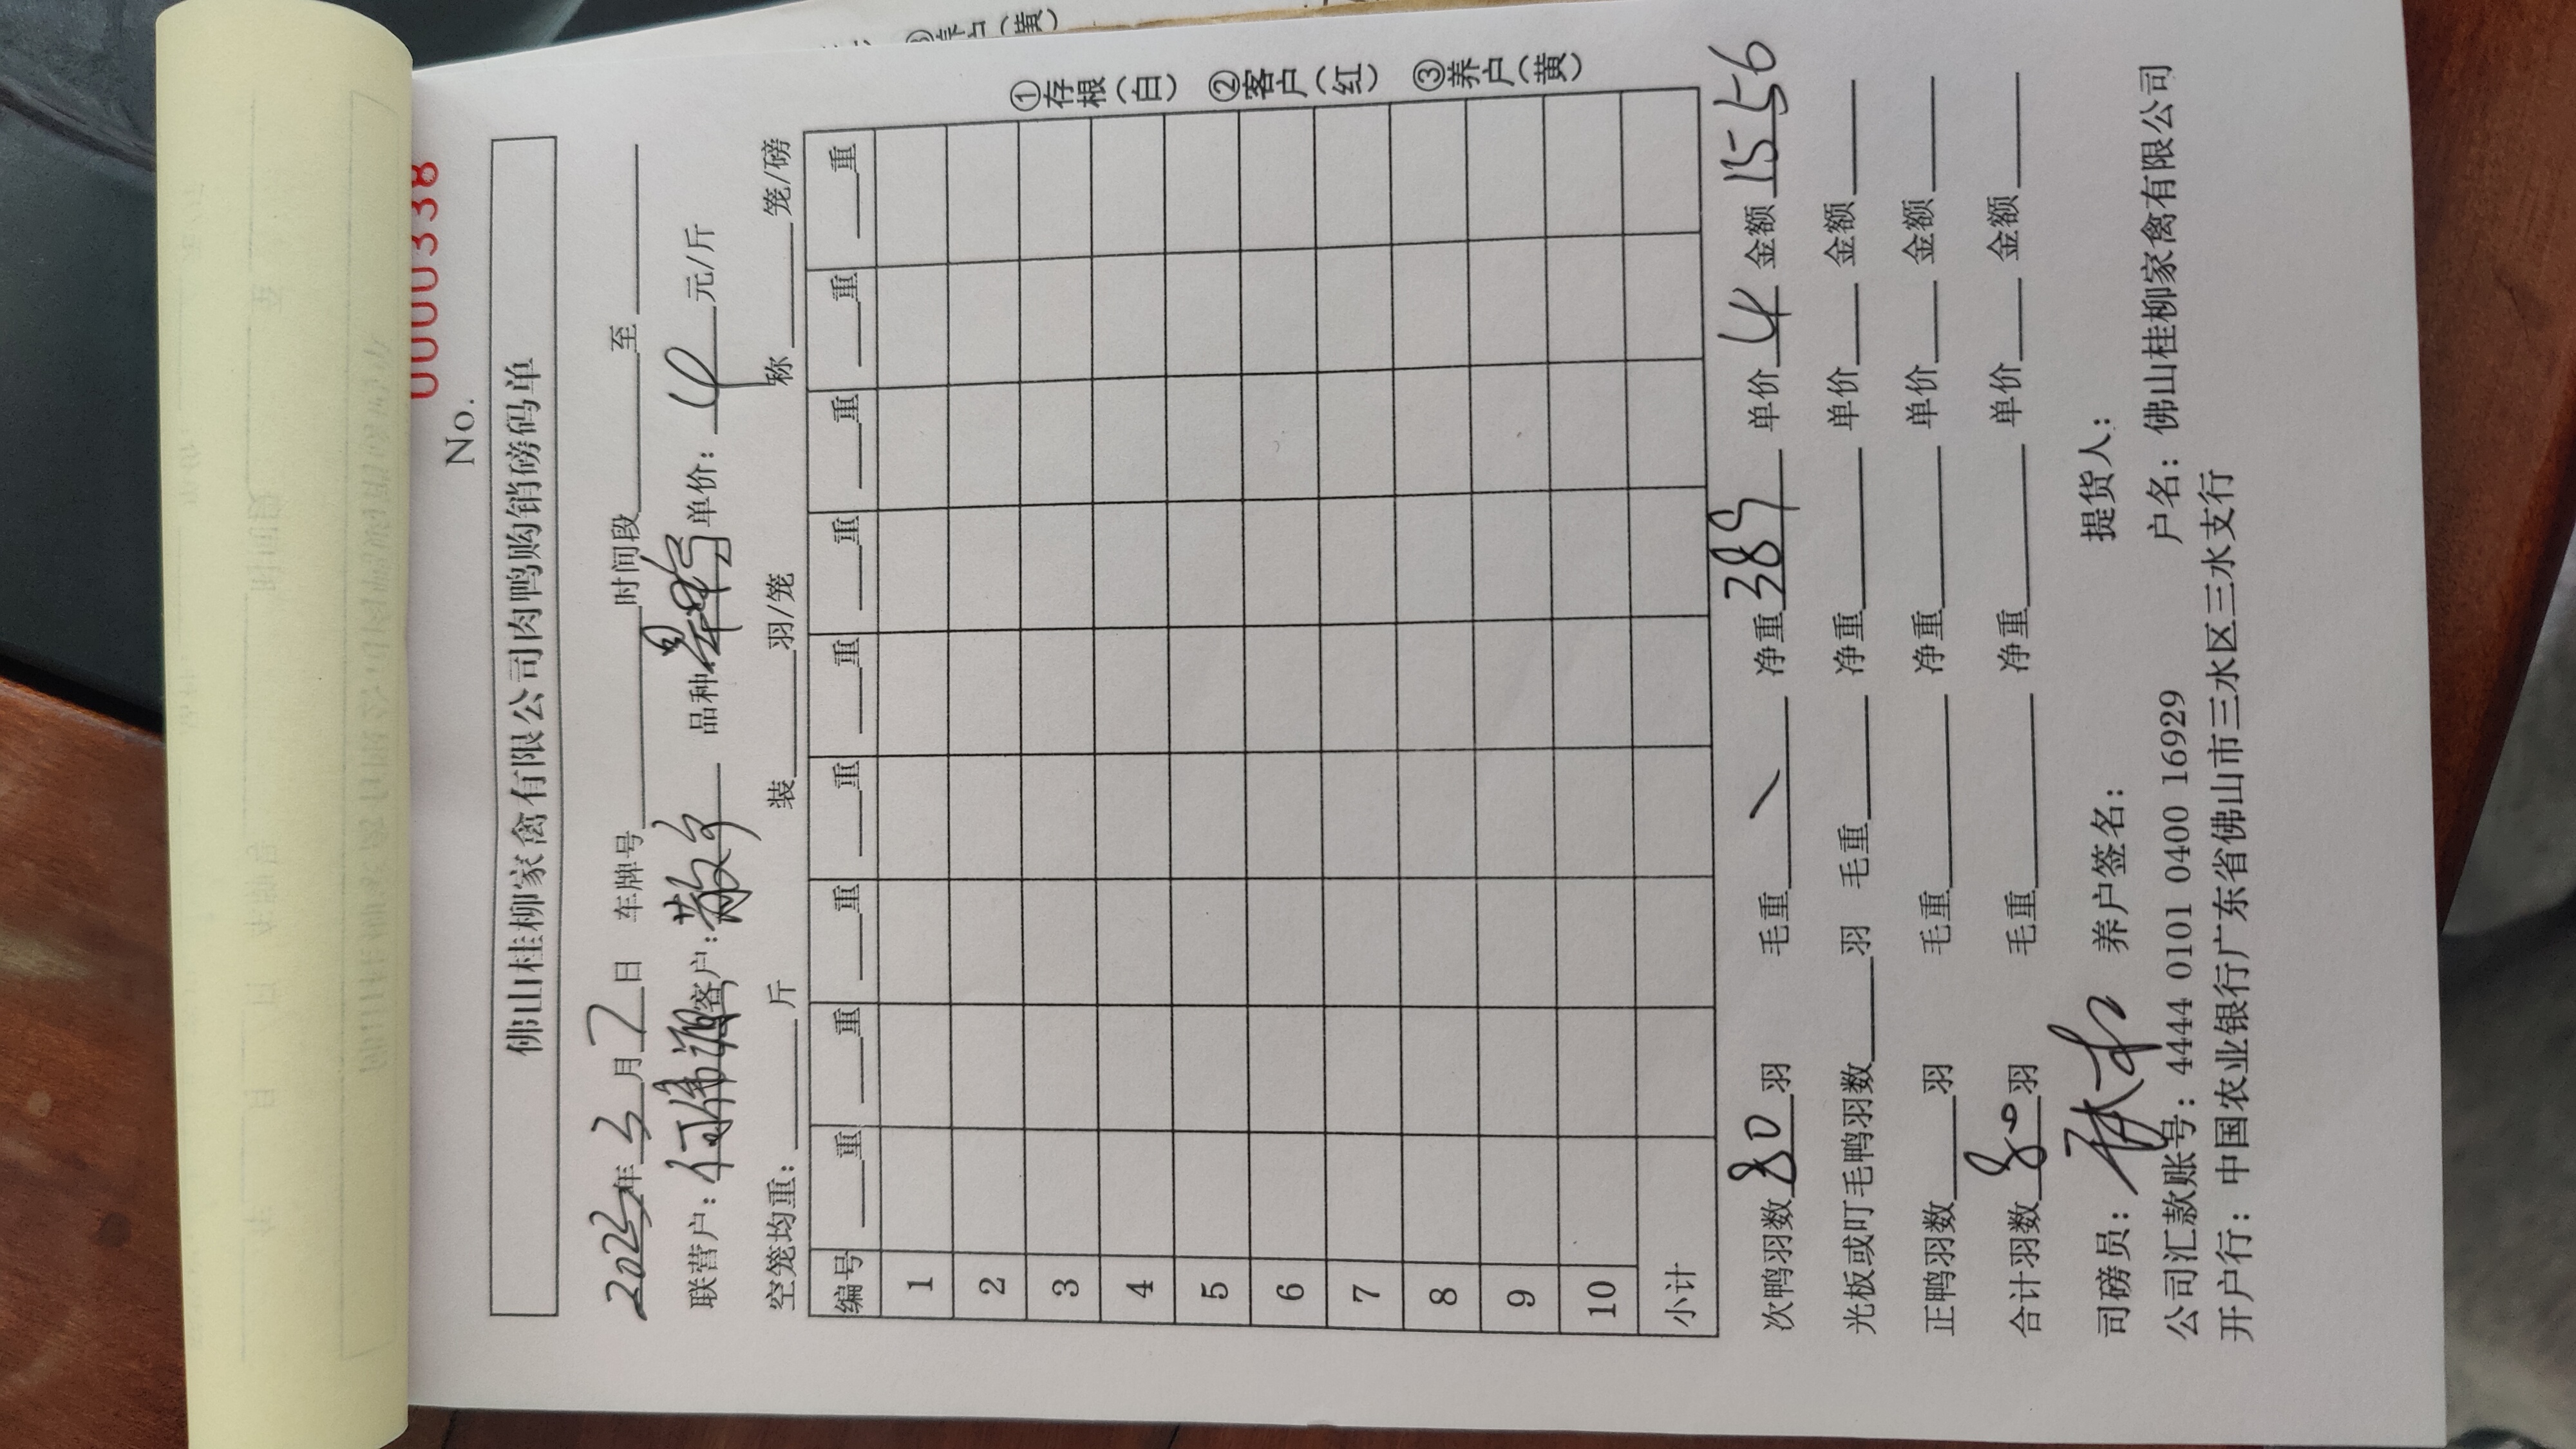 No. 0000338
佛山桂柳家禽有限公司肉鸭购销磅码单
2023年3月7日 车牌号 时间段 至
联营户：何伟源 客户：散户 品种 单价：4 元/斤
空笼均重： 斤 装 羽/笼 称 笼/磅
编号 重 重 重 重 重 重 重 重 重
1
2
3
4
5
6
7
8
9
10
小计
①存根(白) ②客户(红) ③养户(黄)
次鸭羽数80羽 毛重 净重389 单价4 金额1556
光板或叮毛鸭羽数 羽 毛重 净重 单价 金额
正鸭羽数 羽 毛重 净重 单价 金额
合计羽数80羽 毛重 净重 单价 金额
司磅员： 养户签名： 提货人：
公司汇款账号：4444 0101 0400 16929 户名：佛山桂柳家禽有限公司
开户行：中国农业银行广东省佛山市三水区三水支行